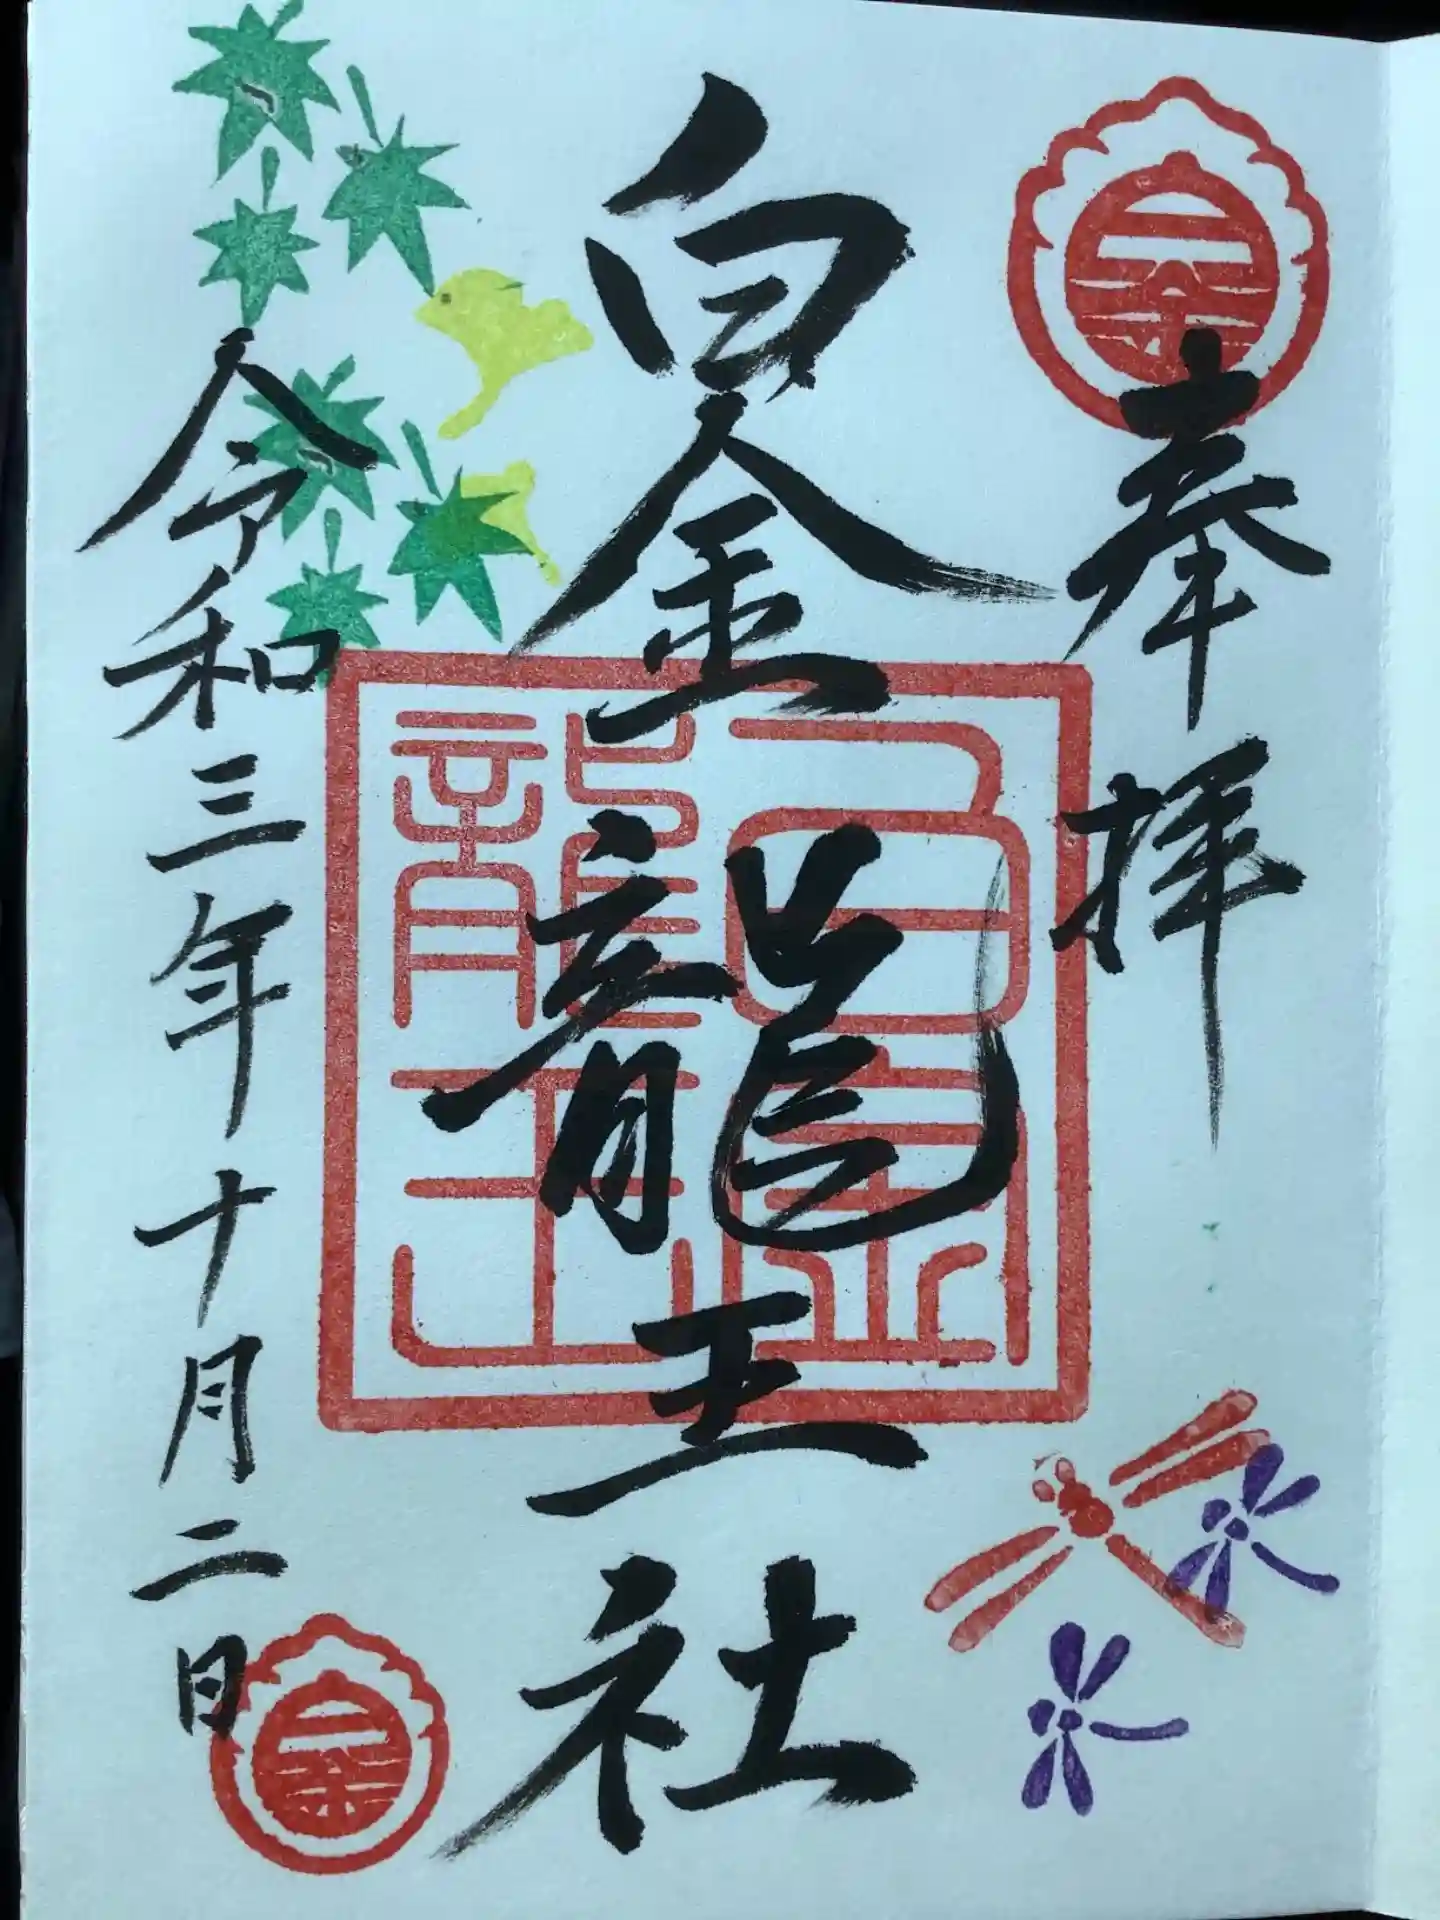 奉拝
白金龍王社
白金
龍王
令和三年十月二日